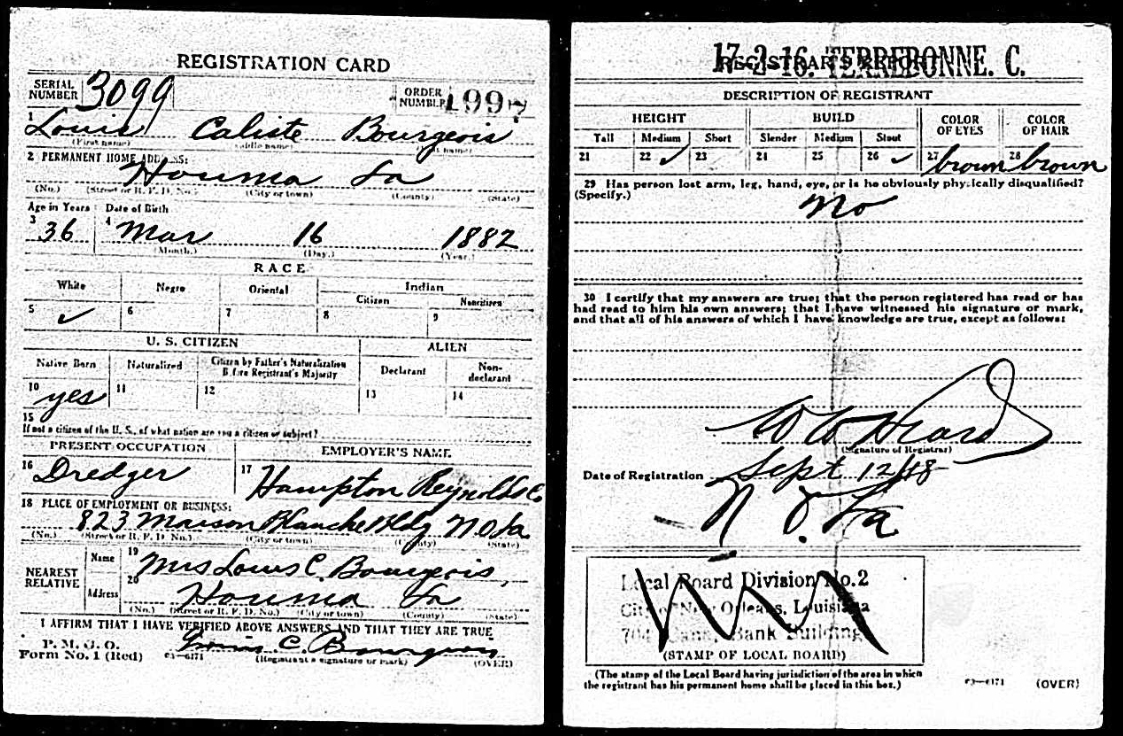 REGISTRATION CARD
SERIAL NUMBER 3099 ORDER NUMBER 1997
1 Louis Caliste Bourgeois
(First name) (Middle name) (Last name)
2 PERMANENT HOME ADDRESS:
Houma La
(No.) (Street or R. F. D. No.) (City or town) (County) (State)
Age in Years Date of Birth
3 36 4 Mar 16 1882
(Month.) (Day.) (Year.)
RACE
White Negro Oriental Indian
Citizen Noncitizen
5 ✓ 6 7 8 9
U. S. CITIZEN ALIEN
Native Born Naturalized Citizen by Father's Naturalization Before Registrant's Majority Declarant Non-declarant
10 yes 11 12 13 14
15
If not a citizen of the U. S., of what nation are you a citizen or subject?
PRESENT OCCUPATION EMPLOYER'S NAME
16 Dredger 17 Hampton Reynolds Co
18 PLACE OF EMPLOYMENT OR BUSINESS:
823 Maison Blanche Bldg N O La
(No.) (Street or R. F. D. No.) (City or town) (County) (State)
NEAREST RELATIVE Name 19 Mrs Louis C. Bourgeois,
Address 20 Houma La
(No.) (Street or R. F. D. No.) (City or town) (County) (State)
I AFFIRM THAT I HAVE VERIFIED ABOVE ANSWERS AND THAT THEY ARE TRUE
P. M. G. O.
Form No. 1 (Red) 03—6171 Louis C. Bourgeois
(Registrant's signature or mark) (OVER)
17-2-16. TERREBONNE. C.
REGISTRAR'S REPORT
DESCRIPTION OF REGISTRANT
HEIGHT BUILD COLOR OF EYES COLOR OF HAIR
Tall Medium Short Slender Medium Stout
21 22 ✓ 23 24 25 26 ✓ 27 brown 28 brown
29 Has person lost arm, leg, hand, eye, or is he obviously physically disqualified?
(Specify.) No
30 I certify that my answers are true; that the person registered has read or has
had read to him his own answers; that I have witnessed his signature or mark,
and that all of his answers of which I have knowledge are true, except as follows:
W W Heard
(Signature of Registrar)
Date of Registration Sept 12/18
N O La
Local Board Division No. 2
City of New Orleans, Louisiana
Bank Building
(STAMP OF LOCAL BOARD)
(The stamp of the Local Board having jurisdiction of the area in which
the registrant has his permanent home shall be placed in this box.) 03—6171 (OVER)